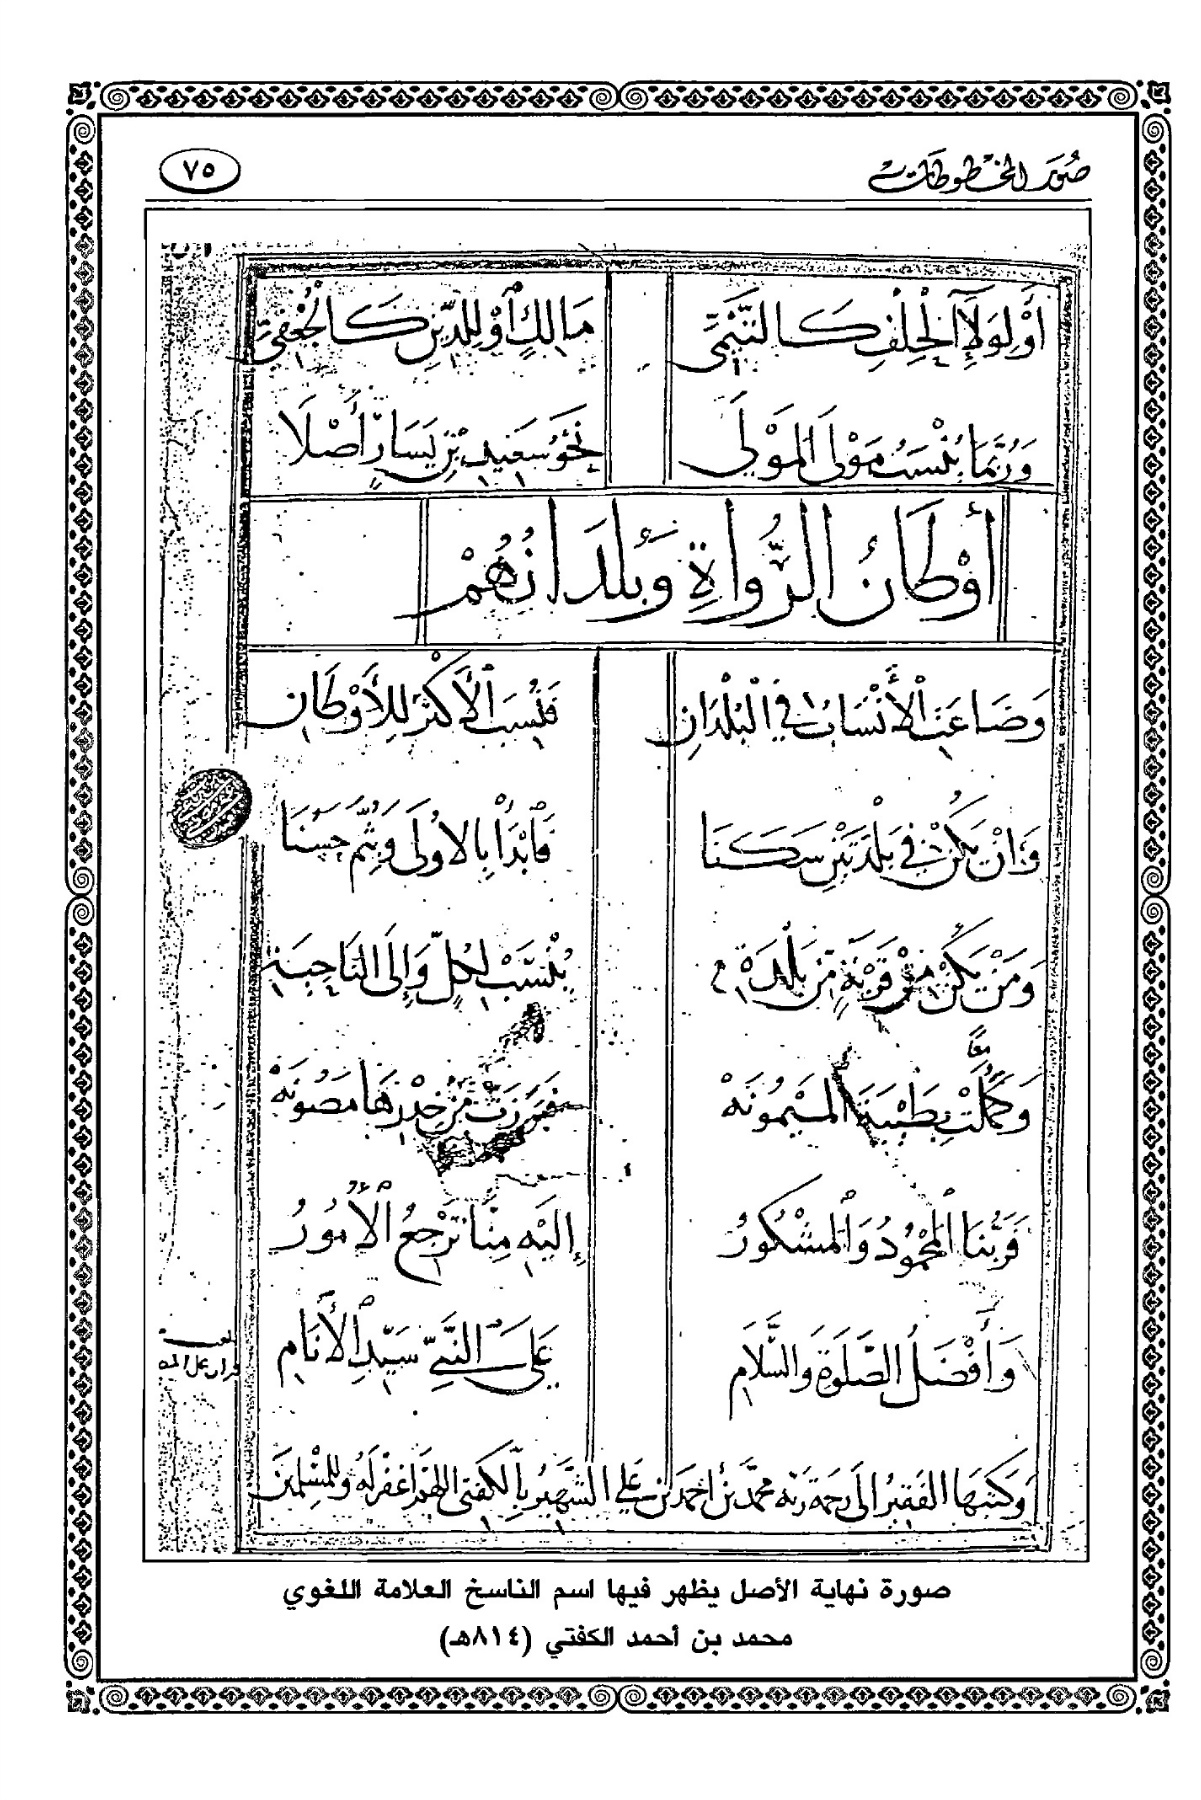 صُوَر المخطوطات
٧٥
أَوْ لِوَلَآءِ الْحِلْفِ كَالتَّيْمِىِّ مَالِكٌ أَوْ لِلدِّيْنِ كَالْجُعْفِيِّ
وَرُبَّمَا يُنْسَبُ مَوْلَى الْمَوْلَي نَحْوُ سَعِيْدِ بْنِ يَسَارٍ أَصْلَا
أَوْطَانُ الرُّوَاةِ وَبُلْدَانُهُمْ
وَضَاعَتِ الْأَنْسَابُ فِي الْبُلْدَانِ فَنُسِبَ الْأَكْثَرُ لِلْأَوْطَانِ
وَإِنْ يَكُنْ فِي بَلْدَتَيْنِ سَكَنَا فَابْدَأْ بِالْاُولَى وَبِثُمَّ حَسُنَا
وَمَنْ يَكُنْ مِنْ قَرْيَةٍ مِنْ بَلْدَةِ يُنْسَبْ لِكُلٍّ وَإِلَى النَّاحِيَةِ
وَكَمُلَتْ بِطَيْبَةَ الْمَيْمُونَهْ فَبَرَزَتْ مِنْ خِدْرِهَا مَصُونَهْ
فَرَبُّنَا الْمَحْمُودُ وَالْمَشْكُورُ إِلَيْهِ مِنَّا تَرْجِعُ الْأُمُورُ
وَأَفْضَلُ الصَّلَوةِ وَالسَّلَامِ عَلَى النَّبِيِّ سَيِّدِ الْأَنَامِ
وَكَتَبَهَا الفَقِيْرُ إِلَى رَحْمَةِ رَبِّهِ مُحَمَّدُ بْنُ أَحْمَدَ بْنِ عَلِي الشَّهِيْرُ بِالكَفْتِي اللهُمَّ اغْفِرْ لَهُ وَلِلْمُسْلِمِيْنَ
صورة نهاية الأصل يظهر فيها اسم الناسخ العلامة اللغوي
محمد بن أحمد الكفتي (٨١٤هـ)